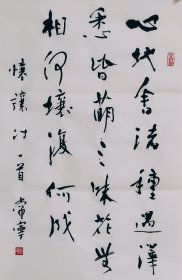 心地含諸種遇澤
悉皆萌三昧花無
相何壞復何成
懷讓詩一首